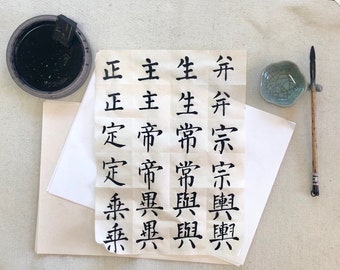 正 主 生 弁
正 主 生 弁
定 帝 常 宗
定 帝 常 宗
乗 異 與 輿
乗 異 與 輿